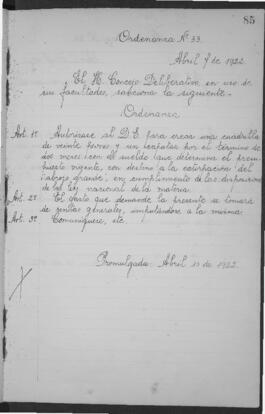 85
Ordenanza Nº 33
Abril 7 de 1922
El H. Concejo Deliberativo, en uso de
sus facultades, sanciona la siguiente
Ordenanza
Art. 1º Autorízase al D.E. para crear una cuadrilla
de veinte peones y un capataz por el término de
dos meses, con el sueldo que determina el presu-
puesto vigente, con destino a la extirpación del
abrojo grande, en cumplimiento de las disposiciones
de la ley nacional de la materia.
Art. 2º El gasto que demande la presente se tomará
de rentas generales, imputándose a la misma
Art. 3º Comuníquese, etc.
Promulgada: Abril 11 de 1922